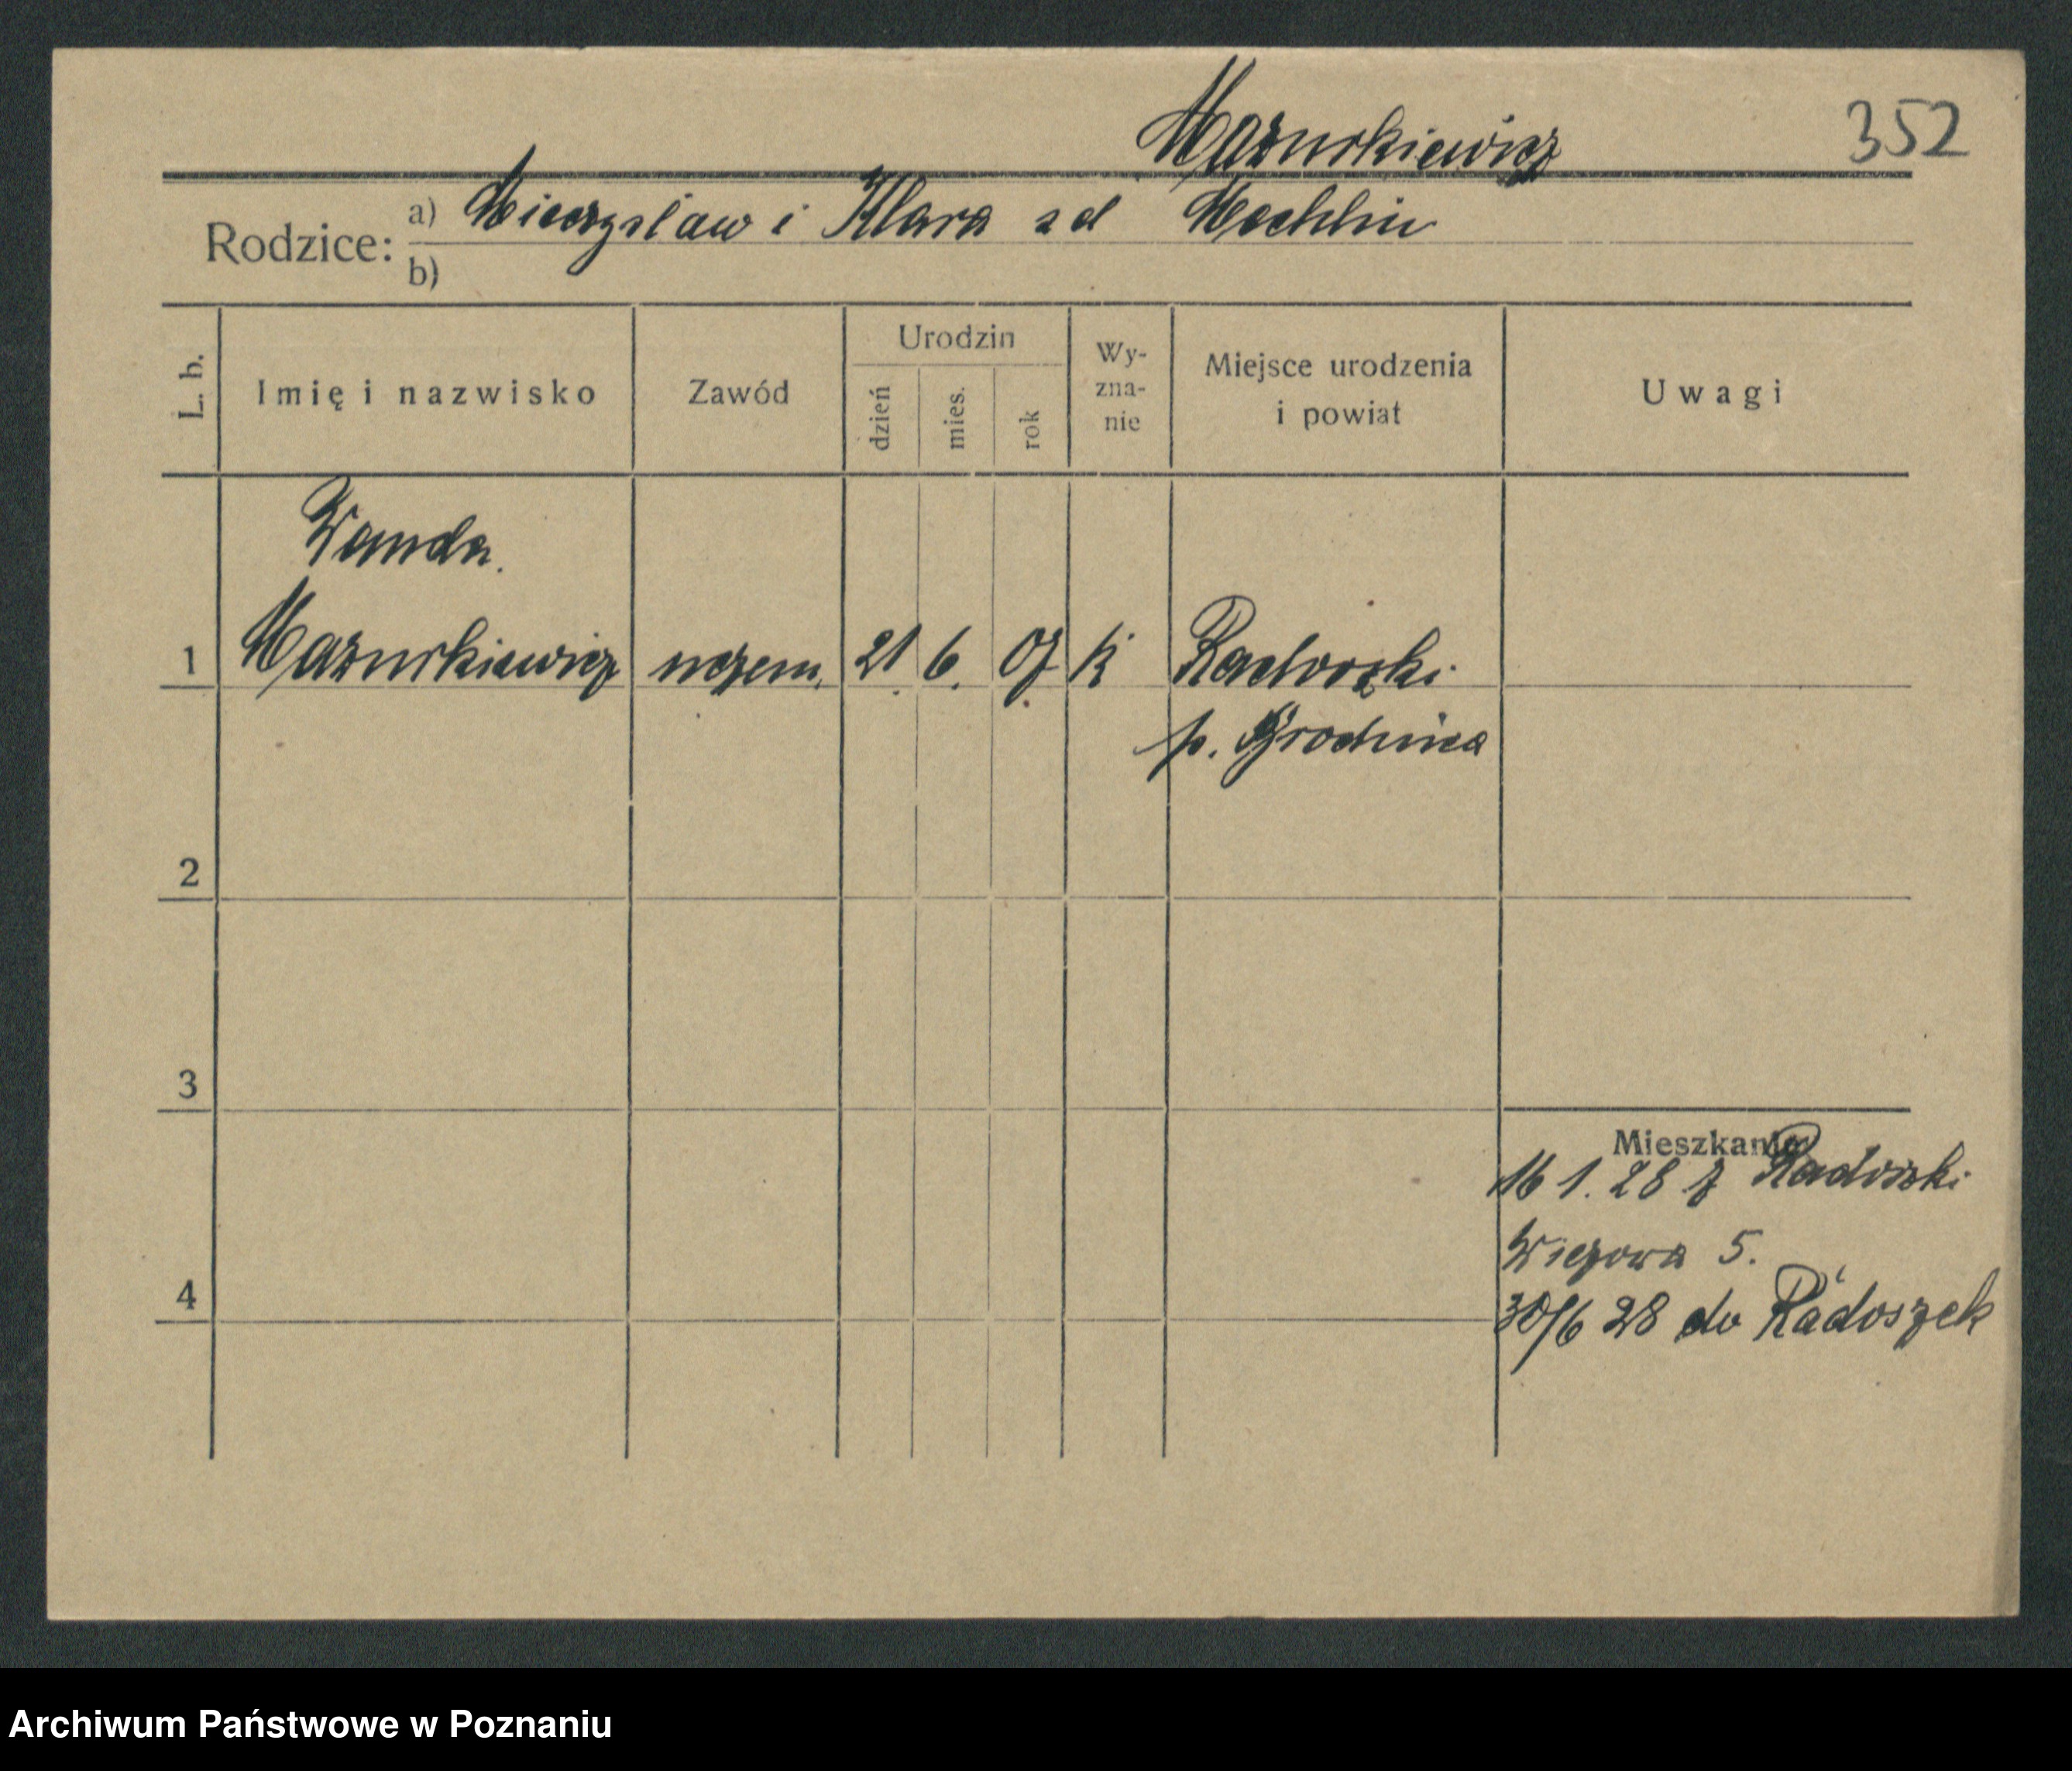 Mazurkiewicz 352
Rodzice: a) Mieczysław i Klara zd Mechlin
b)
L. b. Imię i nazwisko Zawód Urodzin dzień mies. rok Wy-zna-nie Miejsce urodzenia i powiat Uwagi
Wanda.
1 Mazurkiewicz uczen. 21 6. 07. K Radoszki.
p. Brodnica
2
3
Mieszkanie
16 1. 28 z Radoszki.
Wiezowa 5.
4 30/6 28 do Radoszek
Archiwum Państwowe w Poznaniu